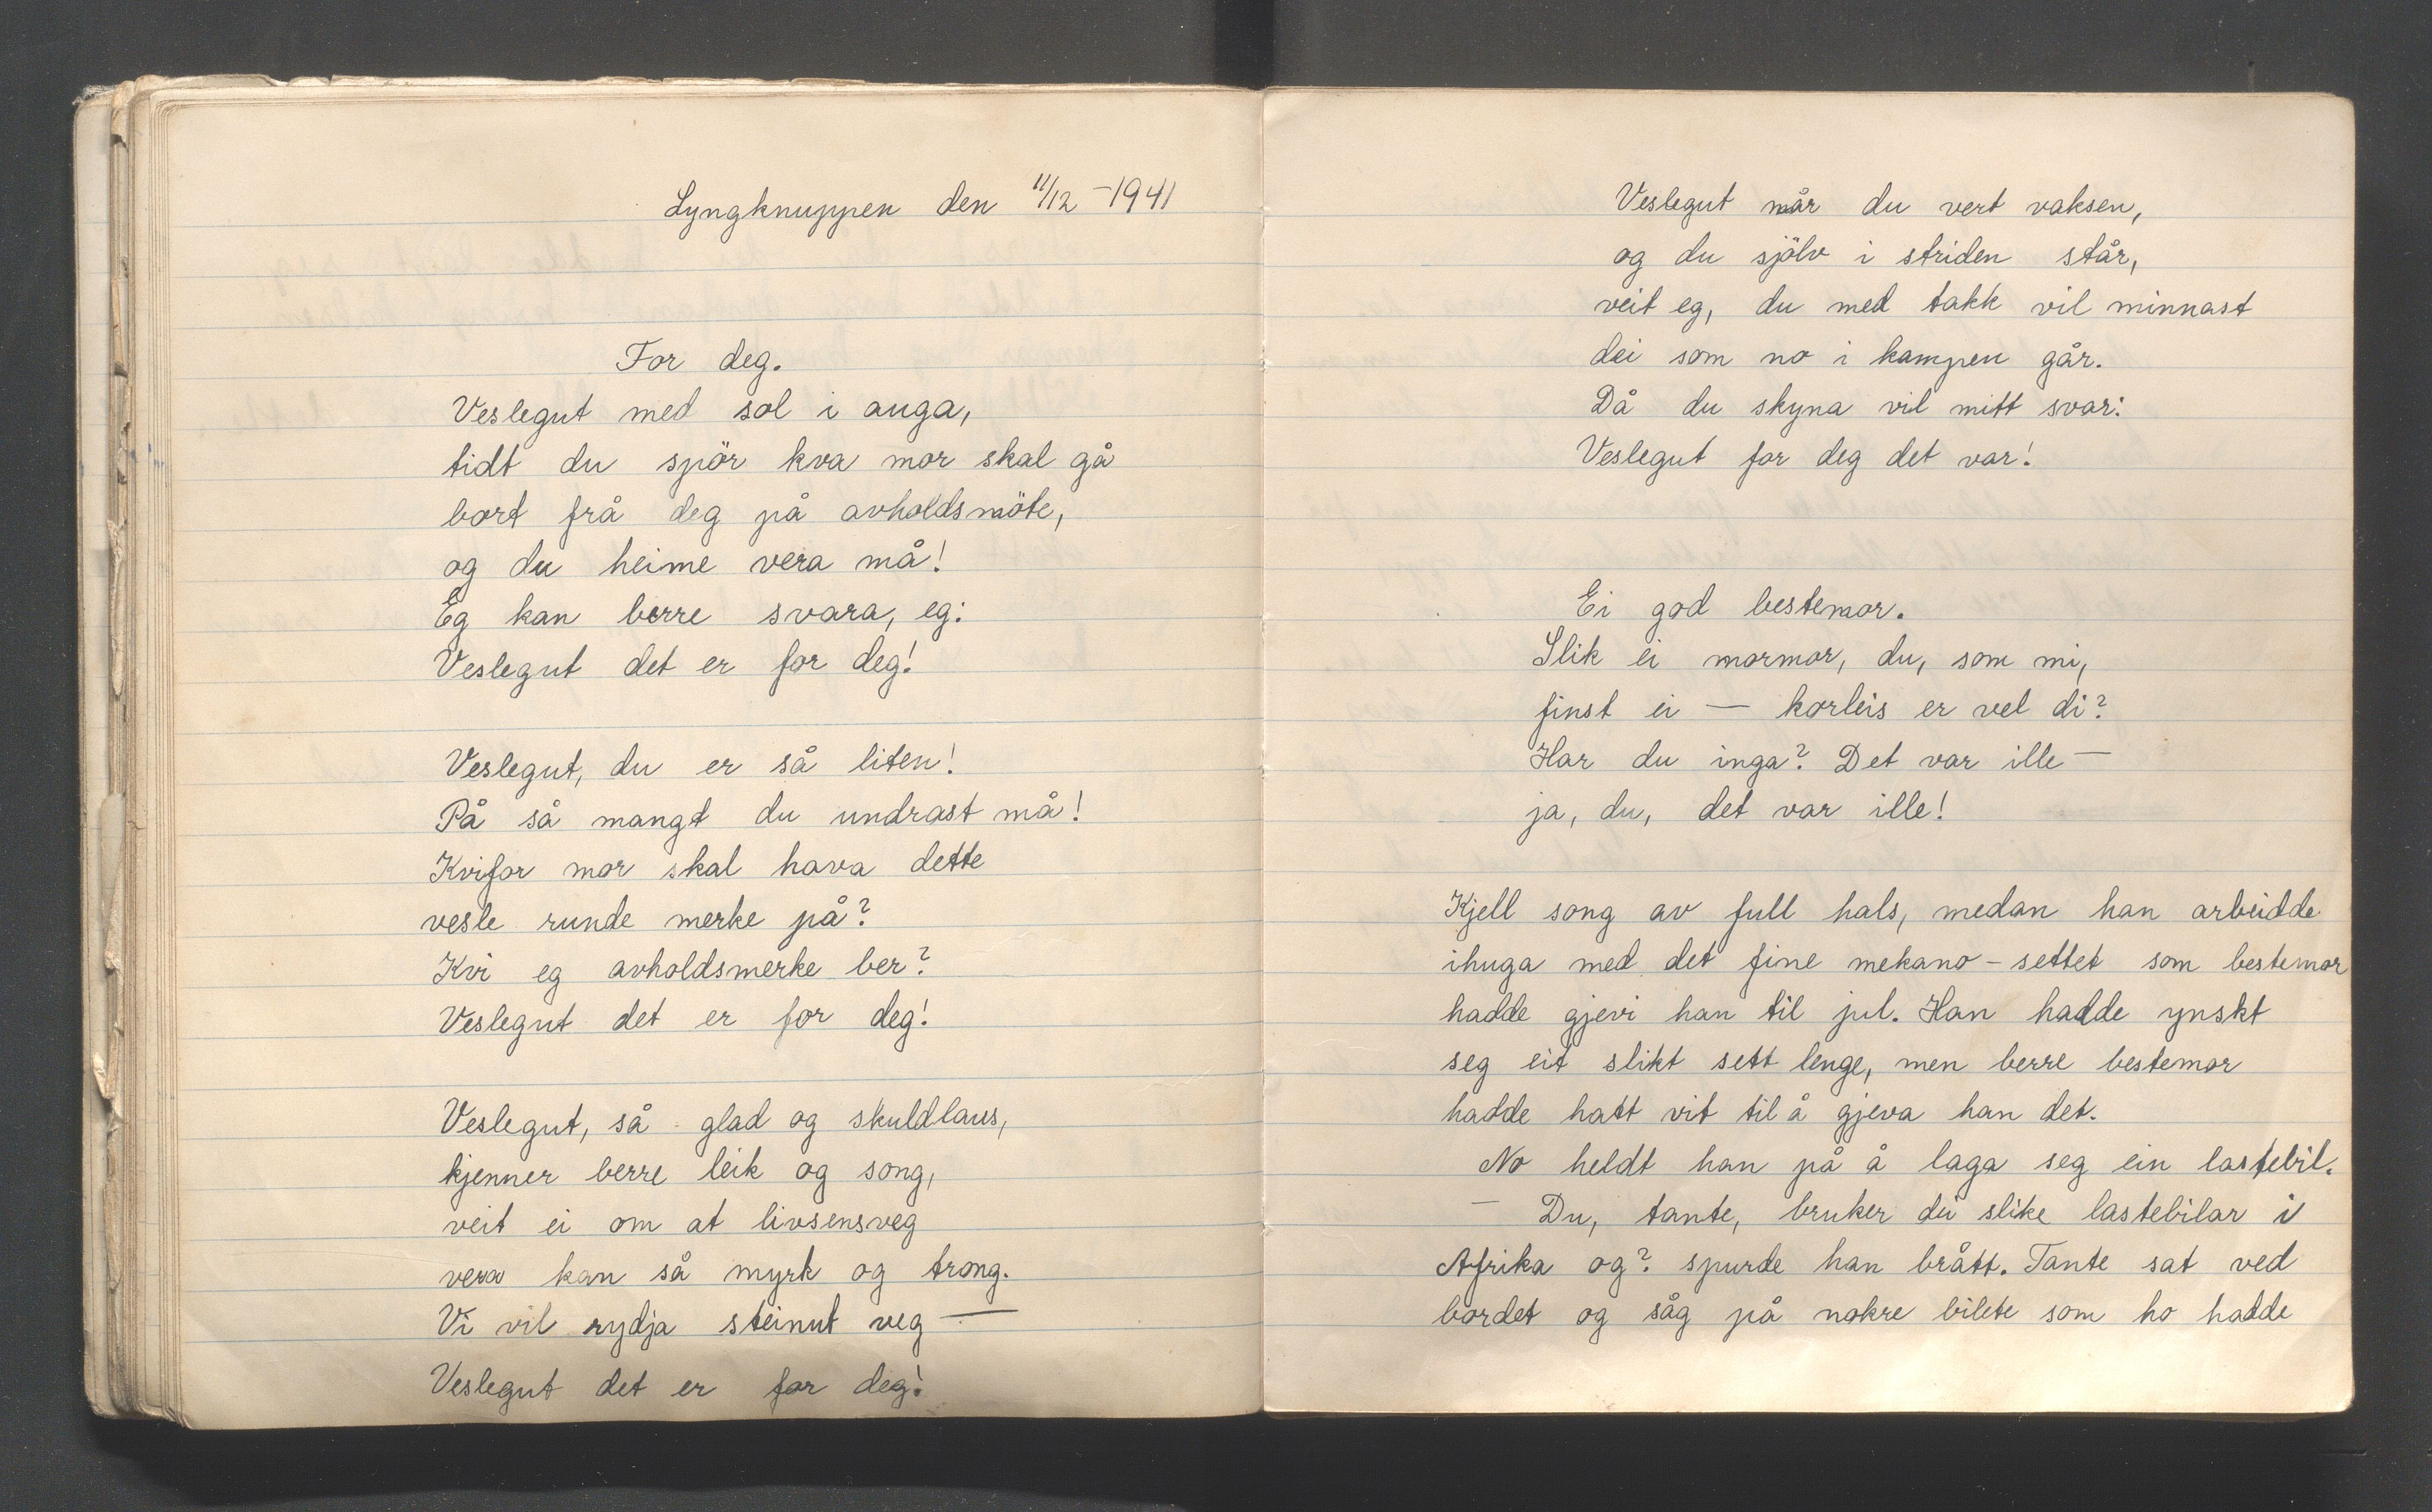 Lyngknuppen den 11/12 - 1941
For deg.
Veslegut med sol i auga,
tidt du spör kva mor skal gå
bort frå deg på avholdsmöte,
og du heime vera må!
Eg kan berre svara, eg:
Veslegut det er for deg!
Veslegut, du er så liten!
På så mangt du undrast må!
Kvifor mor skal hava dette
vesle runde merke på?
Kvi eg avholdsmerke ber?
Veslegut det er for deg!
Veslegut, så glad og skuldlaus,
kjenner berre leik og song,
veit ei om at livsensveg
vera kan så myrk og trong.
Vi vil rydja steinut veg —
Veslegut det er for deg!
Veslegut når du vert vaksen,
og du sjölv i striden står,
veit eg, du med takk vil minnast
dei som no i kampen går.
Då du skyna vil mitt svar:
Veslegut for deg det var!
Ei god bestemor.
Slik ei mormor, du, som mi,
finst ei — korleis er vel di?
Har du inga? Det var ille —
ja, du, det var ille!
Kjell song av full hals, medan han arbeidde
ihuga med det fine mekano - settet som bestemor
hadde gjevi han til jul. Han hadde ynskt
seg eit slikt sett lenge, men berre bestemor
hadde hatt vit til å gjeva han det.
No heldt han på å laga seg ein lastebil.
— Du, tante, bruker dei slike lastebilar i
Afrika og? spurde han brått. Tante sat ved
bordet og såg på nokre bilete som ho hadde